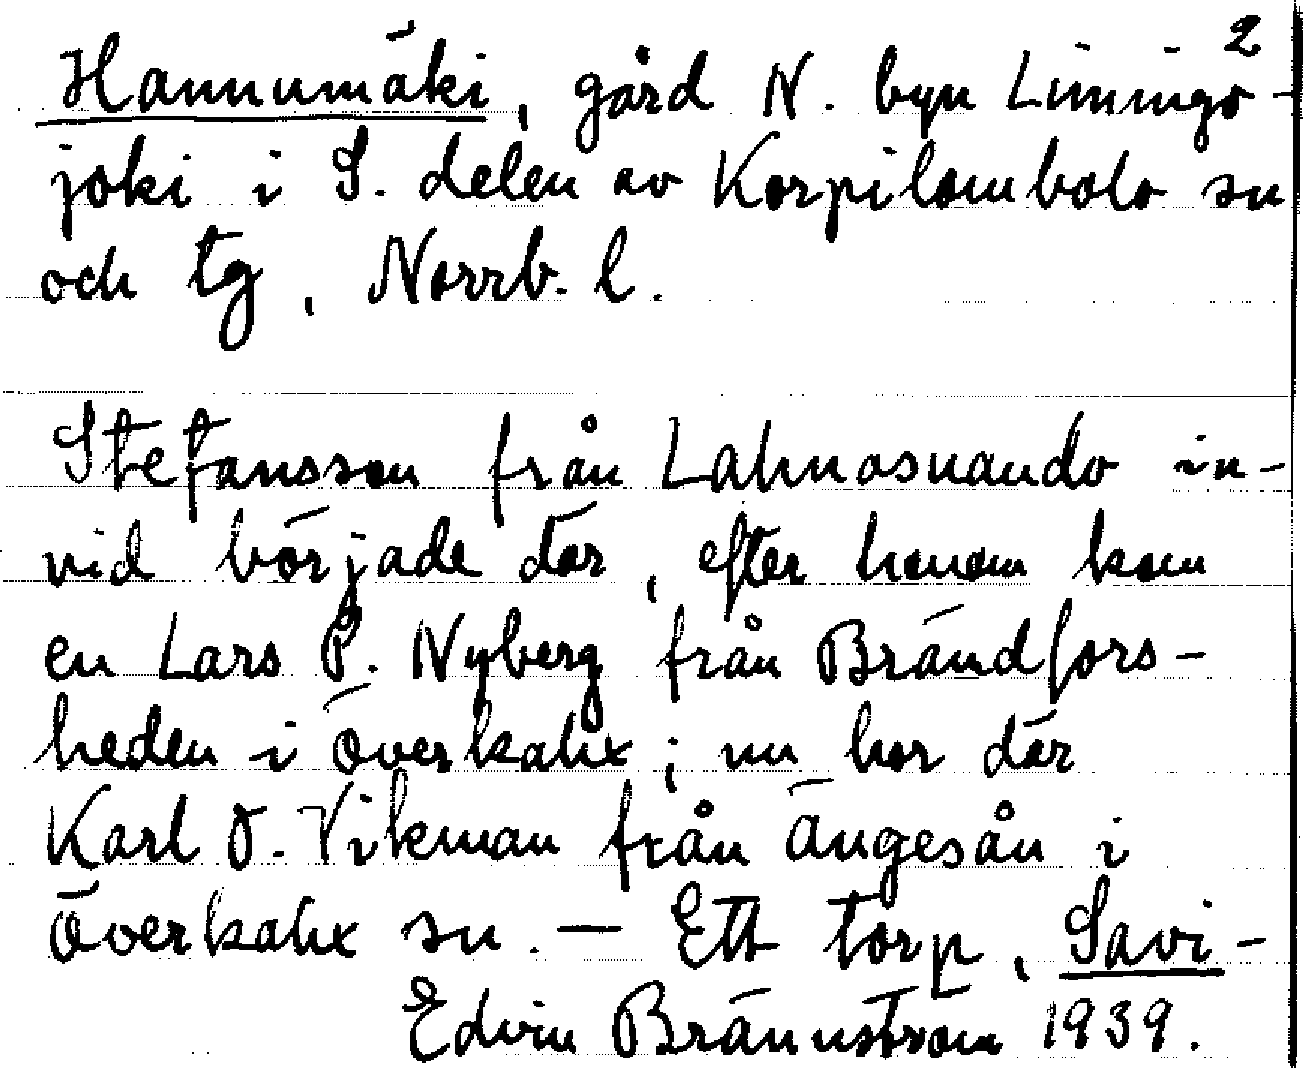 2
Hannumäki, gård N. byn Limingo-
joki i S. delen av Korpilombolo sn
och tg, Norrb. l.
Stefansson från Lahnasuando in-
vid började där, efter honom kom
en Lars P. Nyberg från Brändfors-
heden i Överkalix; nu bor där
Karl O. Vikman från Ängesån i
Överkalix sn. — Ett torp, Savi-
Edvin Brännström 1939.